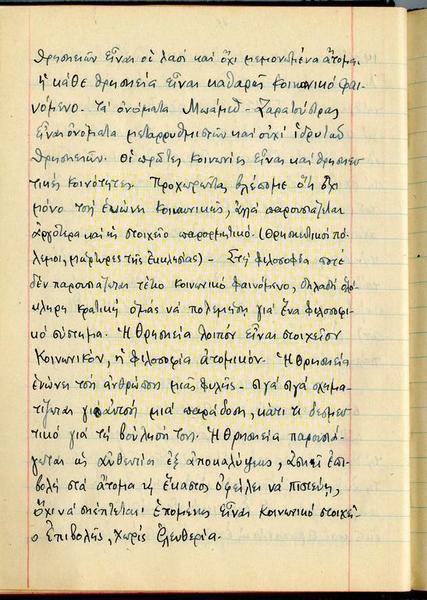 θρησκειῶν εἶναι οἱ λαοί καί ὄχι μεμονωμένα ἄτομα.
ἡ κάθε θρησκεία εἶναι καθαρῶς κοινωνικό φαι-
νόμενο. Τά ὀνόματα Μωάμεθ - Ζαρατούστρας
εἶναι ὀνόματα μεταρρυθμιστῶν καί οὐχί ἱδρυτῶν
θρησκειῶν. Οἱ πρῶτες κοινωνίες εἶναι καί θρησκευ
τικές κοινότητες. Προχωρῶντας βλέπομε ὅτι ὄχι
μόνο τούς ἑνώνει κοινωνικῶς, ἀλλά παρουσιάζεται
ἀργότερα καί ὡς στοιχεῖο παρορμητικό. (Θρησκευτικοί πό-
λεμοι, μάρτυρες τῆς ἐκκλησίας) - Στή φιλοσοφία ποτέ
δέν παρουσιάζεται τέτοιο κοινωνικό φαινόμενο, δηλαδή ὁλό-
κληρη κρατική ὁμάς νά πολεμήση γιά ἕνα φιλοσοφι-
κό σύστημα. Ἡ θρησκεία λοιπόν εἶναι στοιχεῖον
κοινωνικόν, ἡ φιλοσοφία ἀτομικόν. Ἡ θρησκεία
ἑνώνει τούς ἀνθρώπους μιᾶς φυλῆς - σιγά σιγά σχημα-
τίζεται γι' αὐτούς μιά παράδοση, κάτι τι δεσμευ
τικό γιά τή βούλησή των. Ἡ θρησκεία παρουσιά-
ζεται ὡς αὐθεντία ἐξ ἀποκαλύψεως, ἀσκεῖ ἐπι-
βολή στά ἄτομα, ὁ ἕκαστος ὀφείλει νά πιστεύη,
ὄχι νά σκέπτεται. Ἑπομένως εἶναι κοινωνικό στοιχεῖ-
ο ἐπιβολῆς, χωρίς ἐλευθερία.